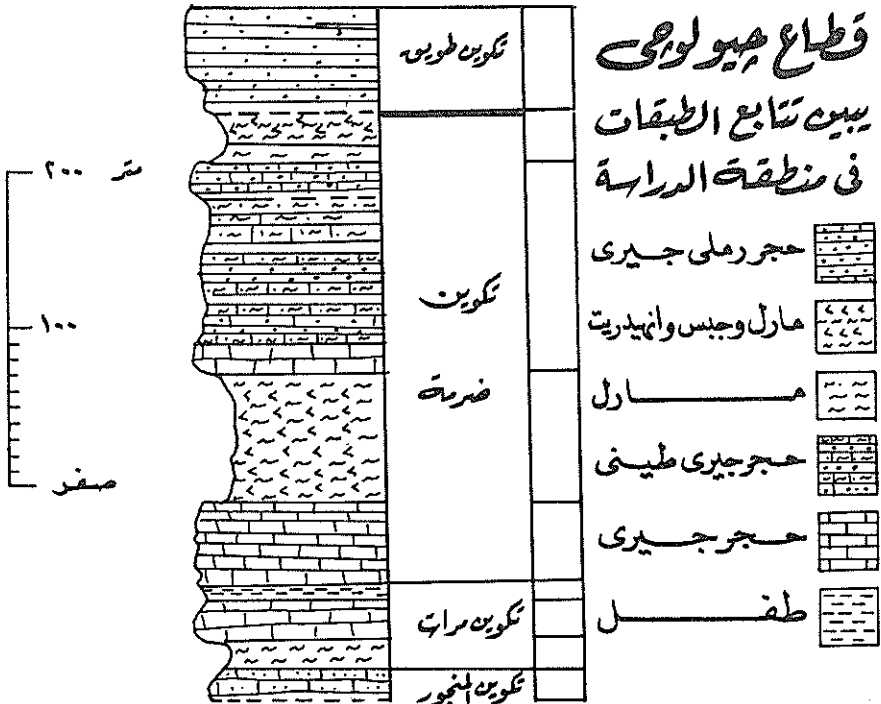 قطاع جيولوجى
يبين تتابع الطبقات
فى منطقة الدراسة
حجر رملى جيرى
مارل وجبس وانهيدريت
مارل
حجر جيرى طينى
حجر جيرى
طفل
تكوين طويق
تكوين
ضرمة
تكوين مرات
تكوين المنجور
٢٠٠ متر
١٠٠
صفر